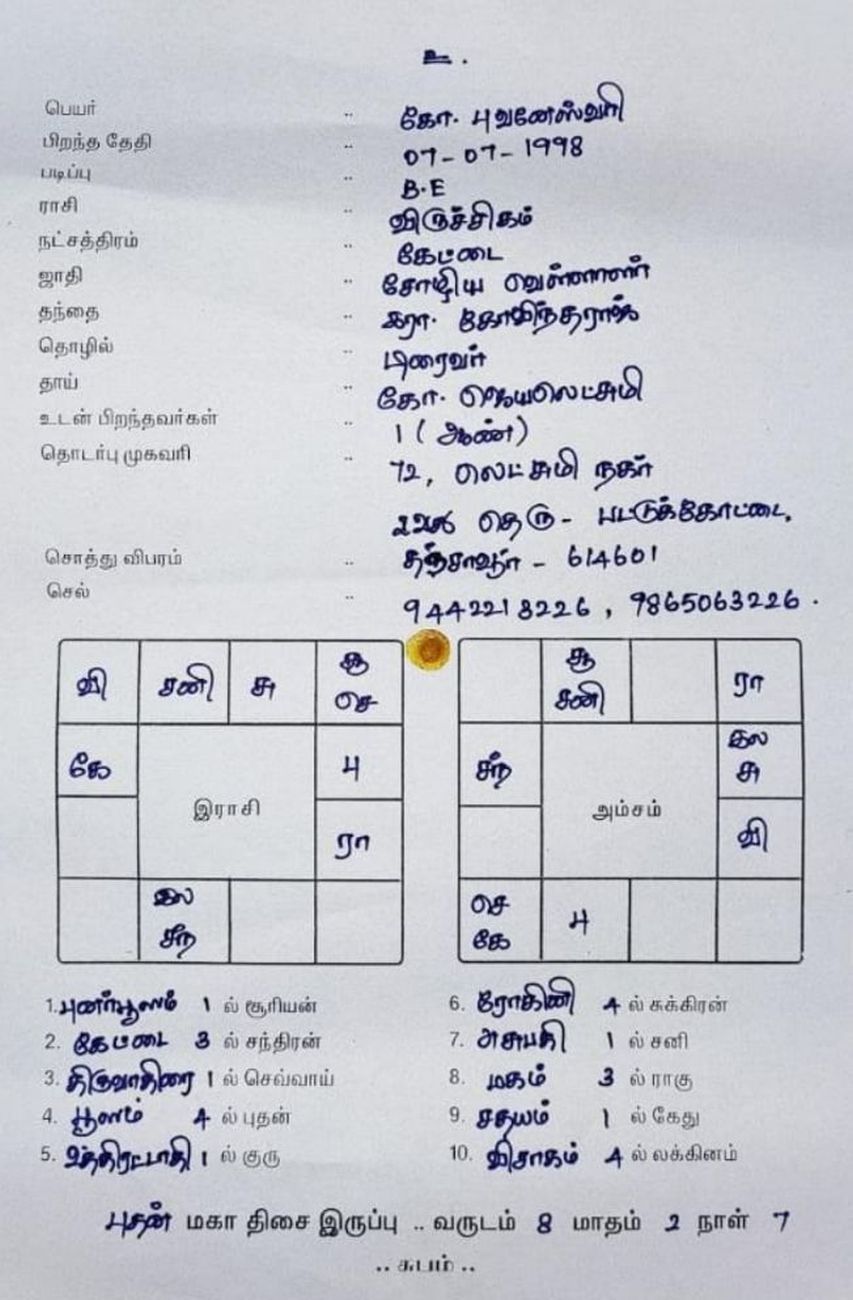 உ.
பெயர் .. கோ. புவனேஸ்வரி
பிறந்த தேதி .. 07-07-1998
படிப்பு .. B.E
ராசி .. விருச்சிகம்
நட்சத்திரம் .. கேட்டை
ஜாதி .. சோழிய வெள்ளாளர்
தந்தை .. கரா. கோவிந்தராஜ்
தொழில் .. டிரைவர்
தாய் .. கோ. ஜெயலெட்சுமி
உடன் பிறந்தவர்கள் .. 1 (ஆண்)
தொடர்பு முகவரி .. 72, லெட்சுமி நகர்
தெரு - பட்டுக்கோட்டை.
சொத்து விபரம் .. தஞ்சாவூர் - 614601
செல் .. 9442213226, 9865063226.
வி சனி சு சூ செ
கே பு
இராசி
ரா
இல சந்
சூ சனி ரா
சந் இல சு
அம்சம்
வி
செ கே பு
1. புனர்பூசம் 1 ல் சூரியன்
2. கேட்டை 3 ல் சந்திரன்
3. திருவாதிரை 1 ல் செவ்வாய்
4. பூசம் 4 ல் புதன்
5. உத்திரட்டாதி 1 ல் குரு
6. ரோகினி 4 ல் சுக்கிரன்
7. அசுபதி 1 ல் சனி
8. மகம் 3 ல் ராகு
9. சதயம் 1 ல் கேது
10. விசாகம் 4 ல் லக்கினம்
புதன் மகா திசை இருப்பு .. வருடம் 8 மாதம் 2 நாள் 7
.. சுபம் ..